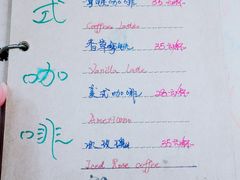 式
咖
啡
咖啡 35元/杯
Coffee Latte
香草拿铁 35元/杯
Vanilla Latte
美式咖啡 28元/杯
Americano
冰玫瑰 35元/杯
Iced Rose coffee